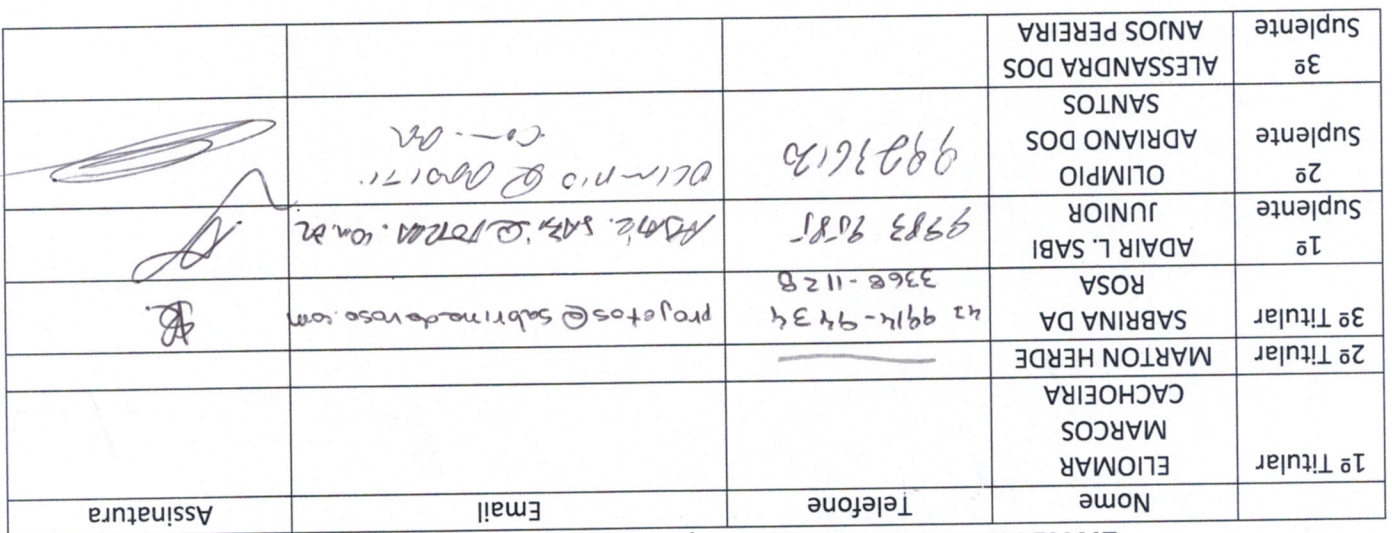 Nome Telefone Email Assinatura
1º Titular ELIOMAR
MARCOS
CACHOEIRA
2º Titular MARTON HERDE
3º Titular SABRINA DA
ROSA
42 9914-9434
3368-1128
projetos@sabrinadarosa.com
1º
Suplente
ADAIR L. SABI
JUNIOR
9983 9585
2º
Suplente
OLIMPIO
ADRIANO DOS
SANTOS
99236120
3º
Suplente
ALESSANDRA DOS
ANJOS PEREIRA